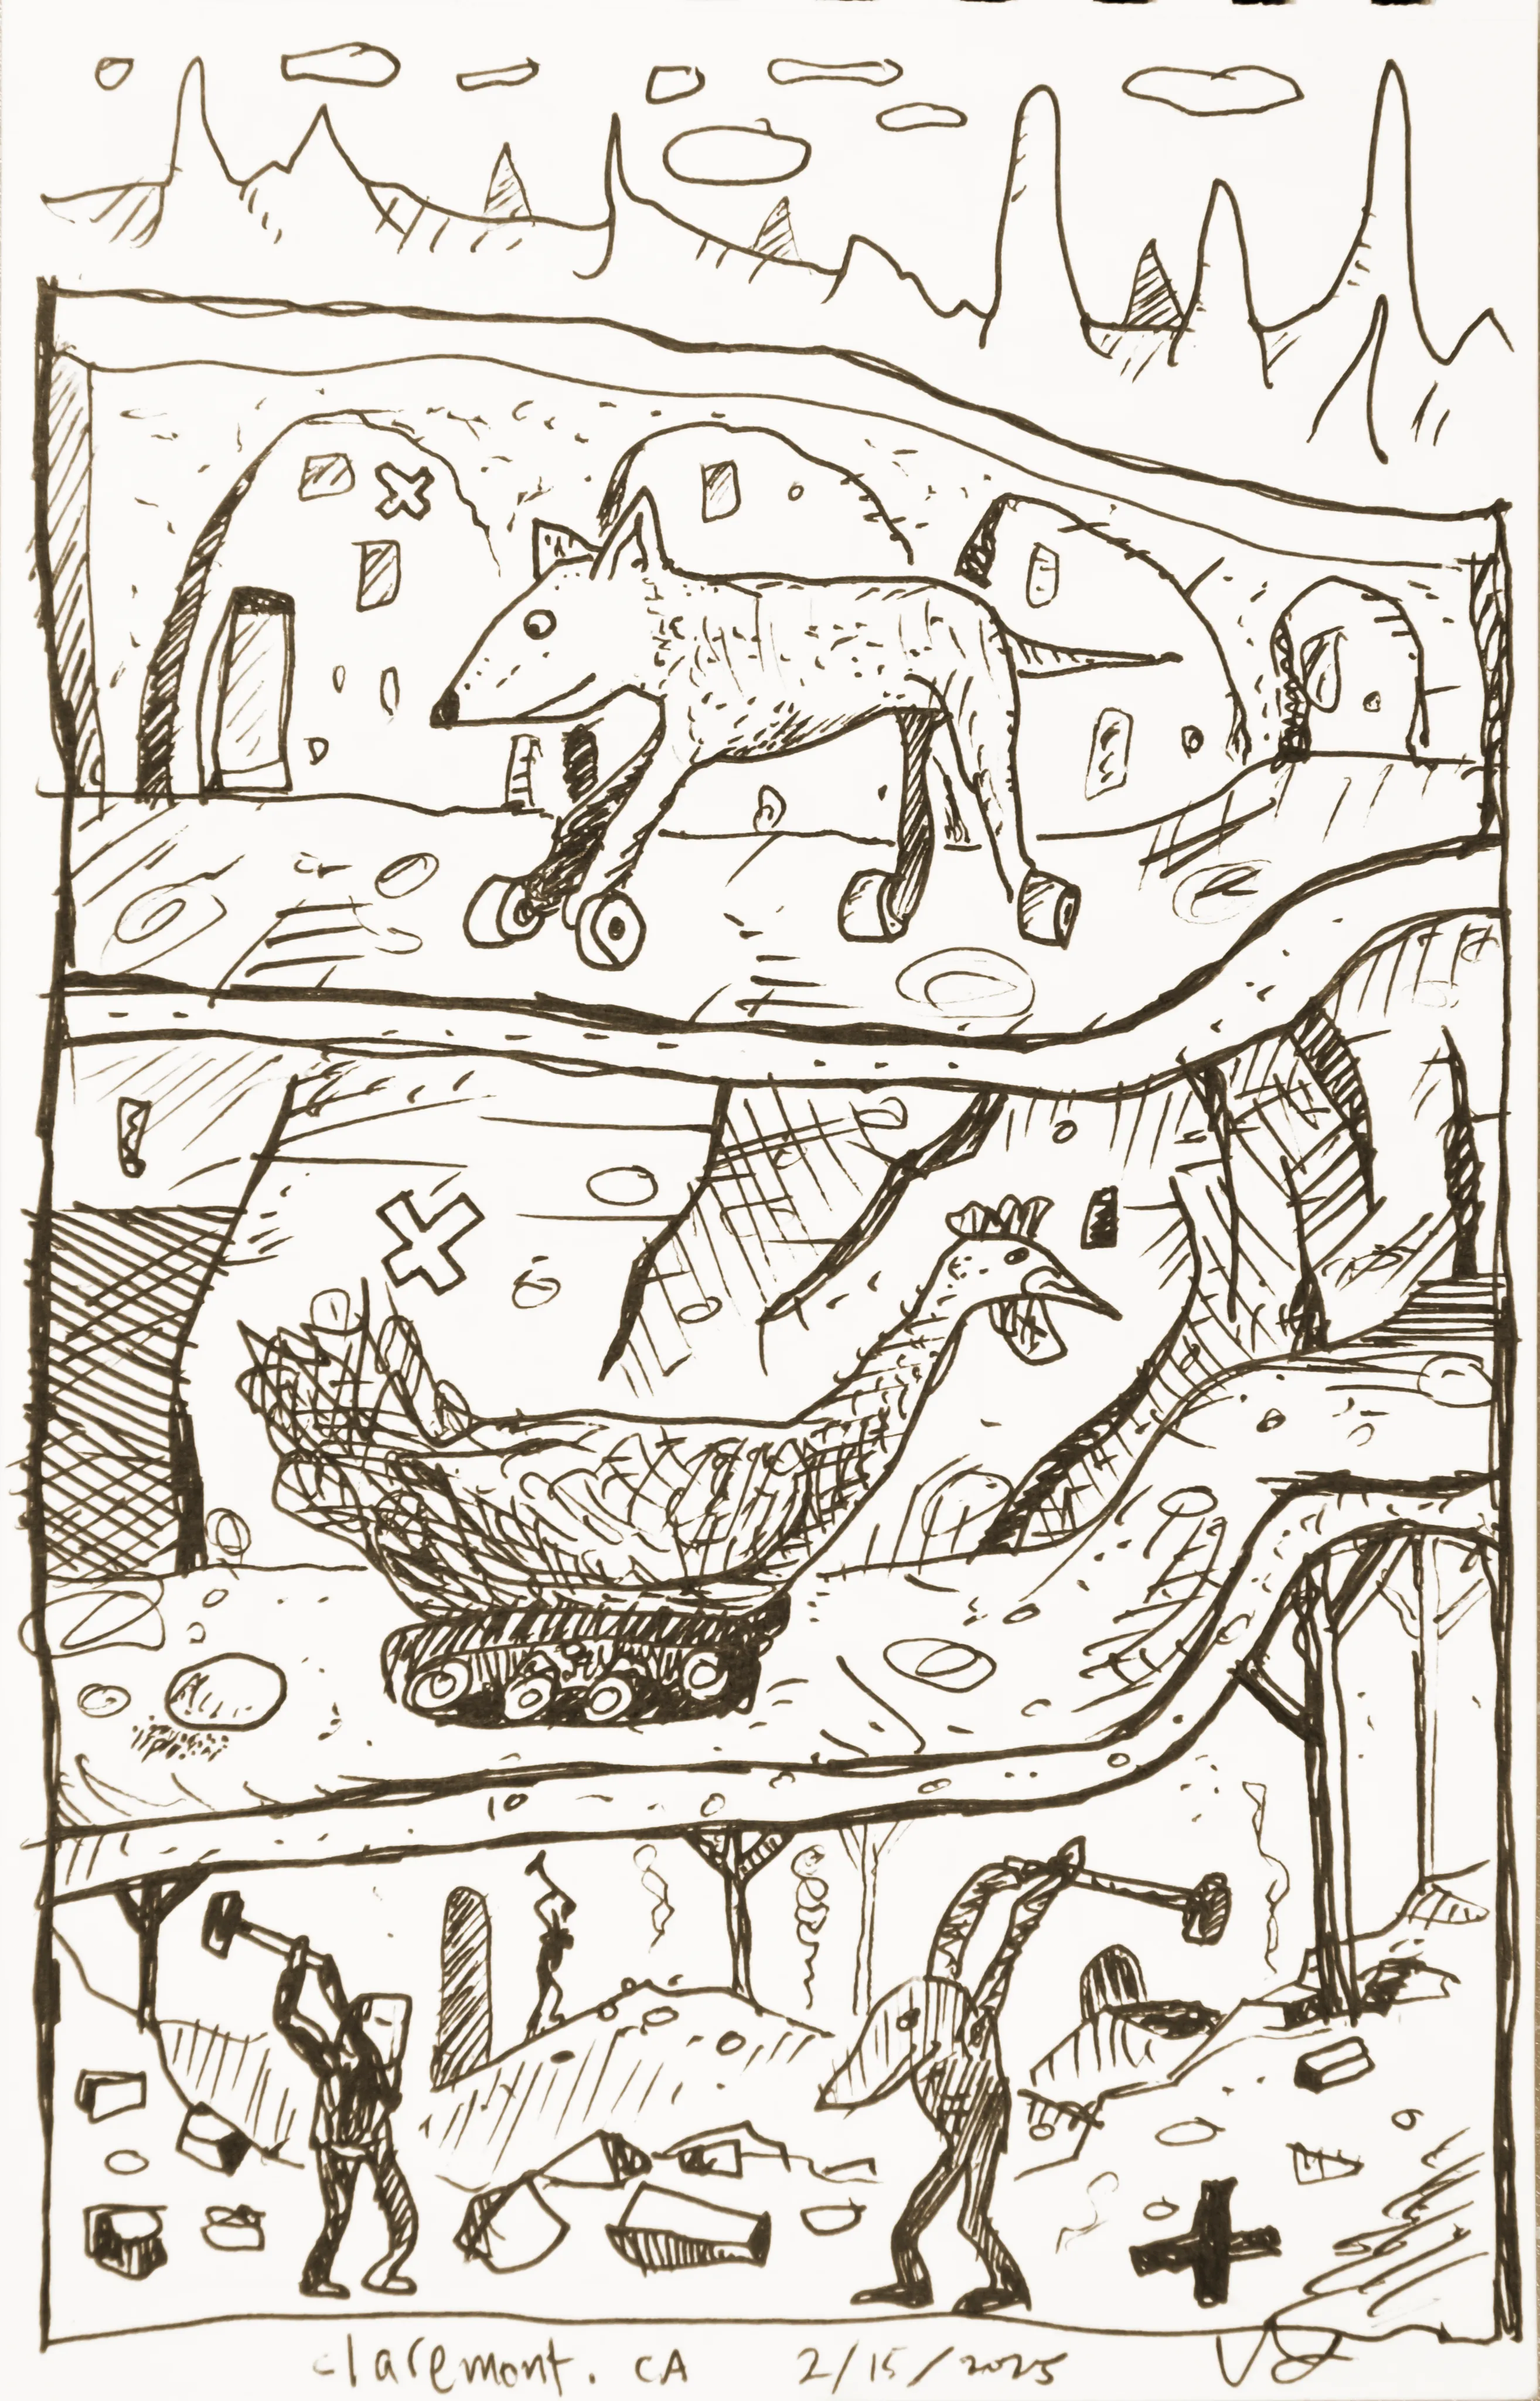 claremont. CA 2/15/2025